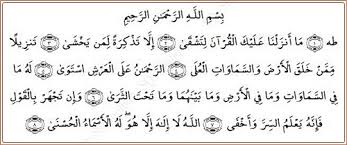 بِسْمِ اللَّهِ الرَّحْمَنِ الرَّحِيمِ
طه ﴿١﴾ مَا أَنزَلْنَا عَلَيْكَ الْقُرْآنَ لِتَشْقَى ﴿٢﴾ إِلَّا تَذْكِرَةً لِّمَن يَخْشَى ﴿٣﴾ تَنزِيلًا
مِّمَّنْ خَلَقَ الْأَرْضَ وَالسَّمَاوَاتِ الْعُلَى ﴿٤﴾ الرَّحْمَنُ عَلَى الْعَرْشِ اسْتَوَى ﴿٥﴾ لَهُ مَا
فِي السَّمَاوَاتِ وَمَا فِي الْأَرْضِ وَمَا بَيْنَهُمَا وَمَا تَحْتَ الثَّرَى ﴿٦﴾ وَإِن تَجْهَرْ بِالْقَوْلِ
فَإِنَّهُ يَعْلَمُ السِّرَّ وَأَخْفَى ﴿٧﴾ اللَّهُ لَا إِلَهَ إِلَّا هُوَ لَهُ الْأَسْمَاءُ الْحُسْنَى